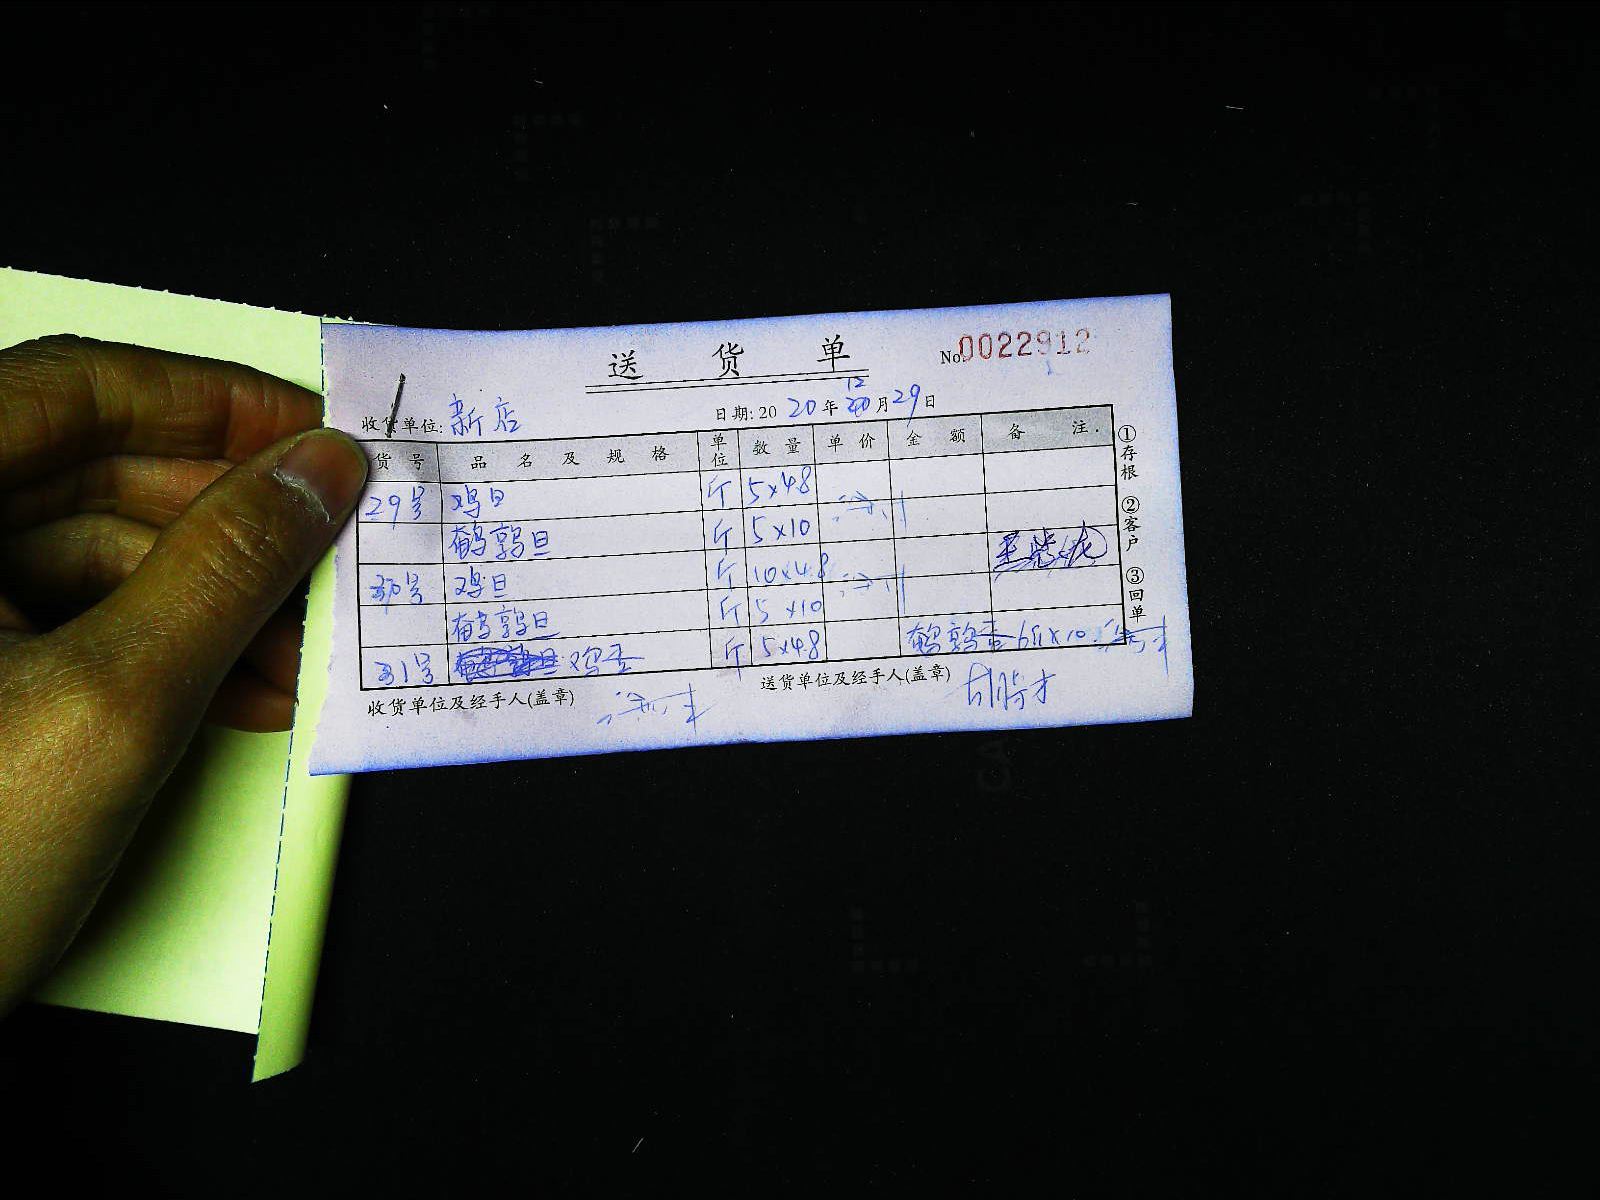 送 货 单 No.0022912
收货单位: 新店 日期: 20 20 年 12 月 29 日
货 号 品 名 及 规 格 单位 数 量 单 价 金 额 备 注
29号 鸡旦 斤 5×4.8
鹌鹑旦 斤 5×10
30号 鸡旦 斤 10×4.8
鹌鹑旦 斤 5×10
31号 鸡蛋 斤 5×4.8 鹌鹑蛋 6斤×10
收货单位及经手人(盖章) 送货单位及经手人(盖章)
①存根 ②客户 ③回单